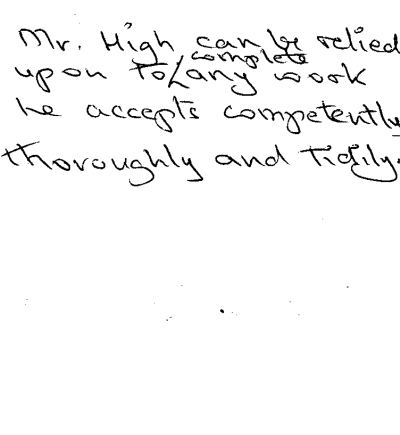 Mr. High can be relied
upon to complete any work
he accepts competently
thoroughly and tidily.